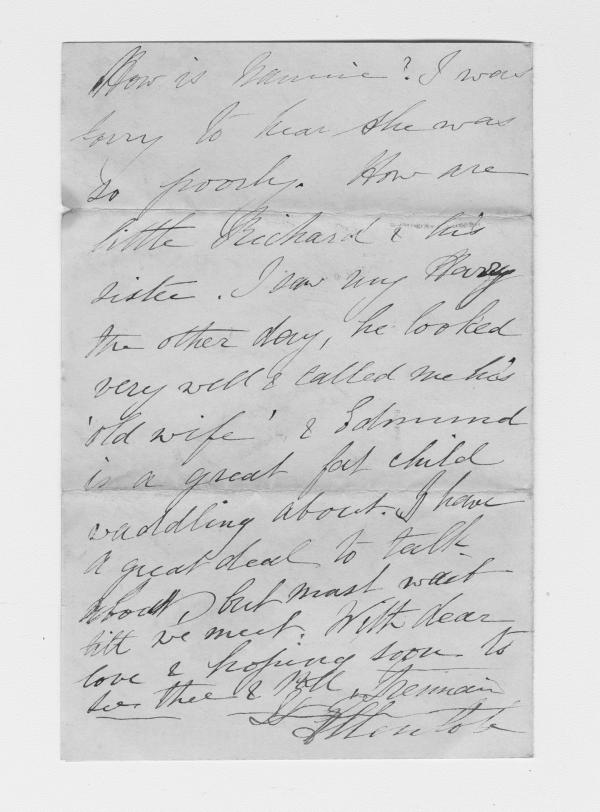 How is Nannie? I was
sorry to hear she was
so poorly. How are
little Richard & his
sister. I saw my Harry
the other day, he looked
very well & called me his
'old wife' & Edmund
is a great fat child
waddling about. I have
a great deal to talk
about, but must wait
till we meet. With dear
love & hoping soon to
see thee & I remain